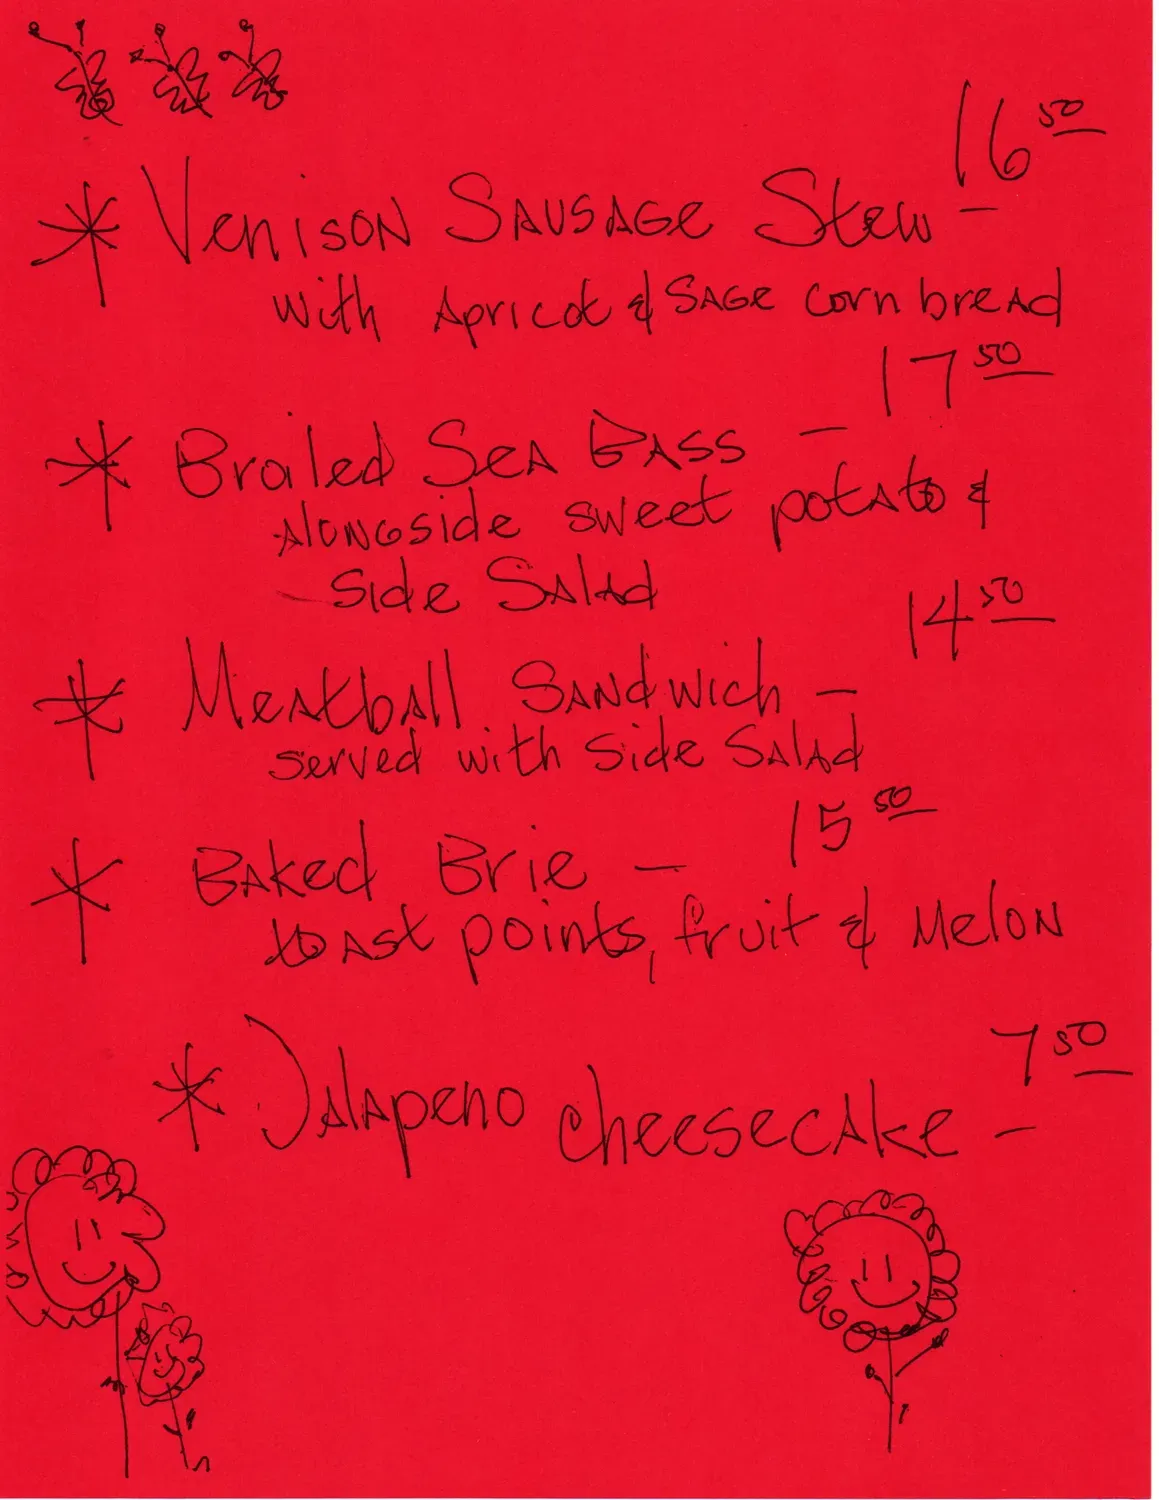 16 50
* Venison Sausage Stew -
with Apricot & Sage corn bread
17 50
* Broiled Sea Bass -
alongside sweet potato &
side Salad
14 50
* Meatball Sandwich -
served with side Salad
15 50
* Baked Brie -
toast points, fruit & melon
7 50
* Jalapeno cheesecake -